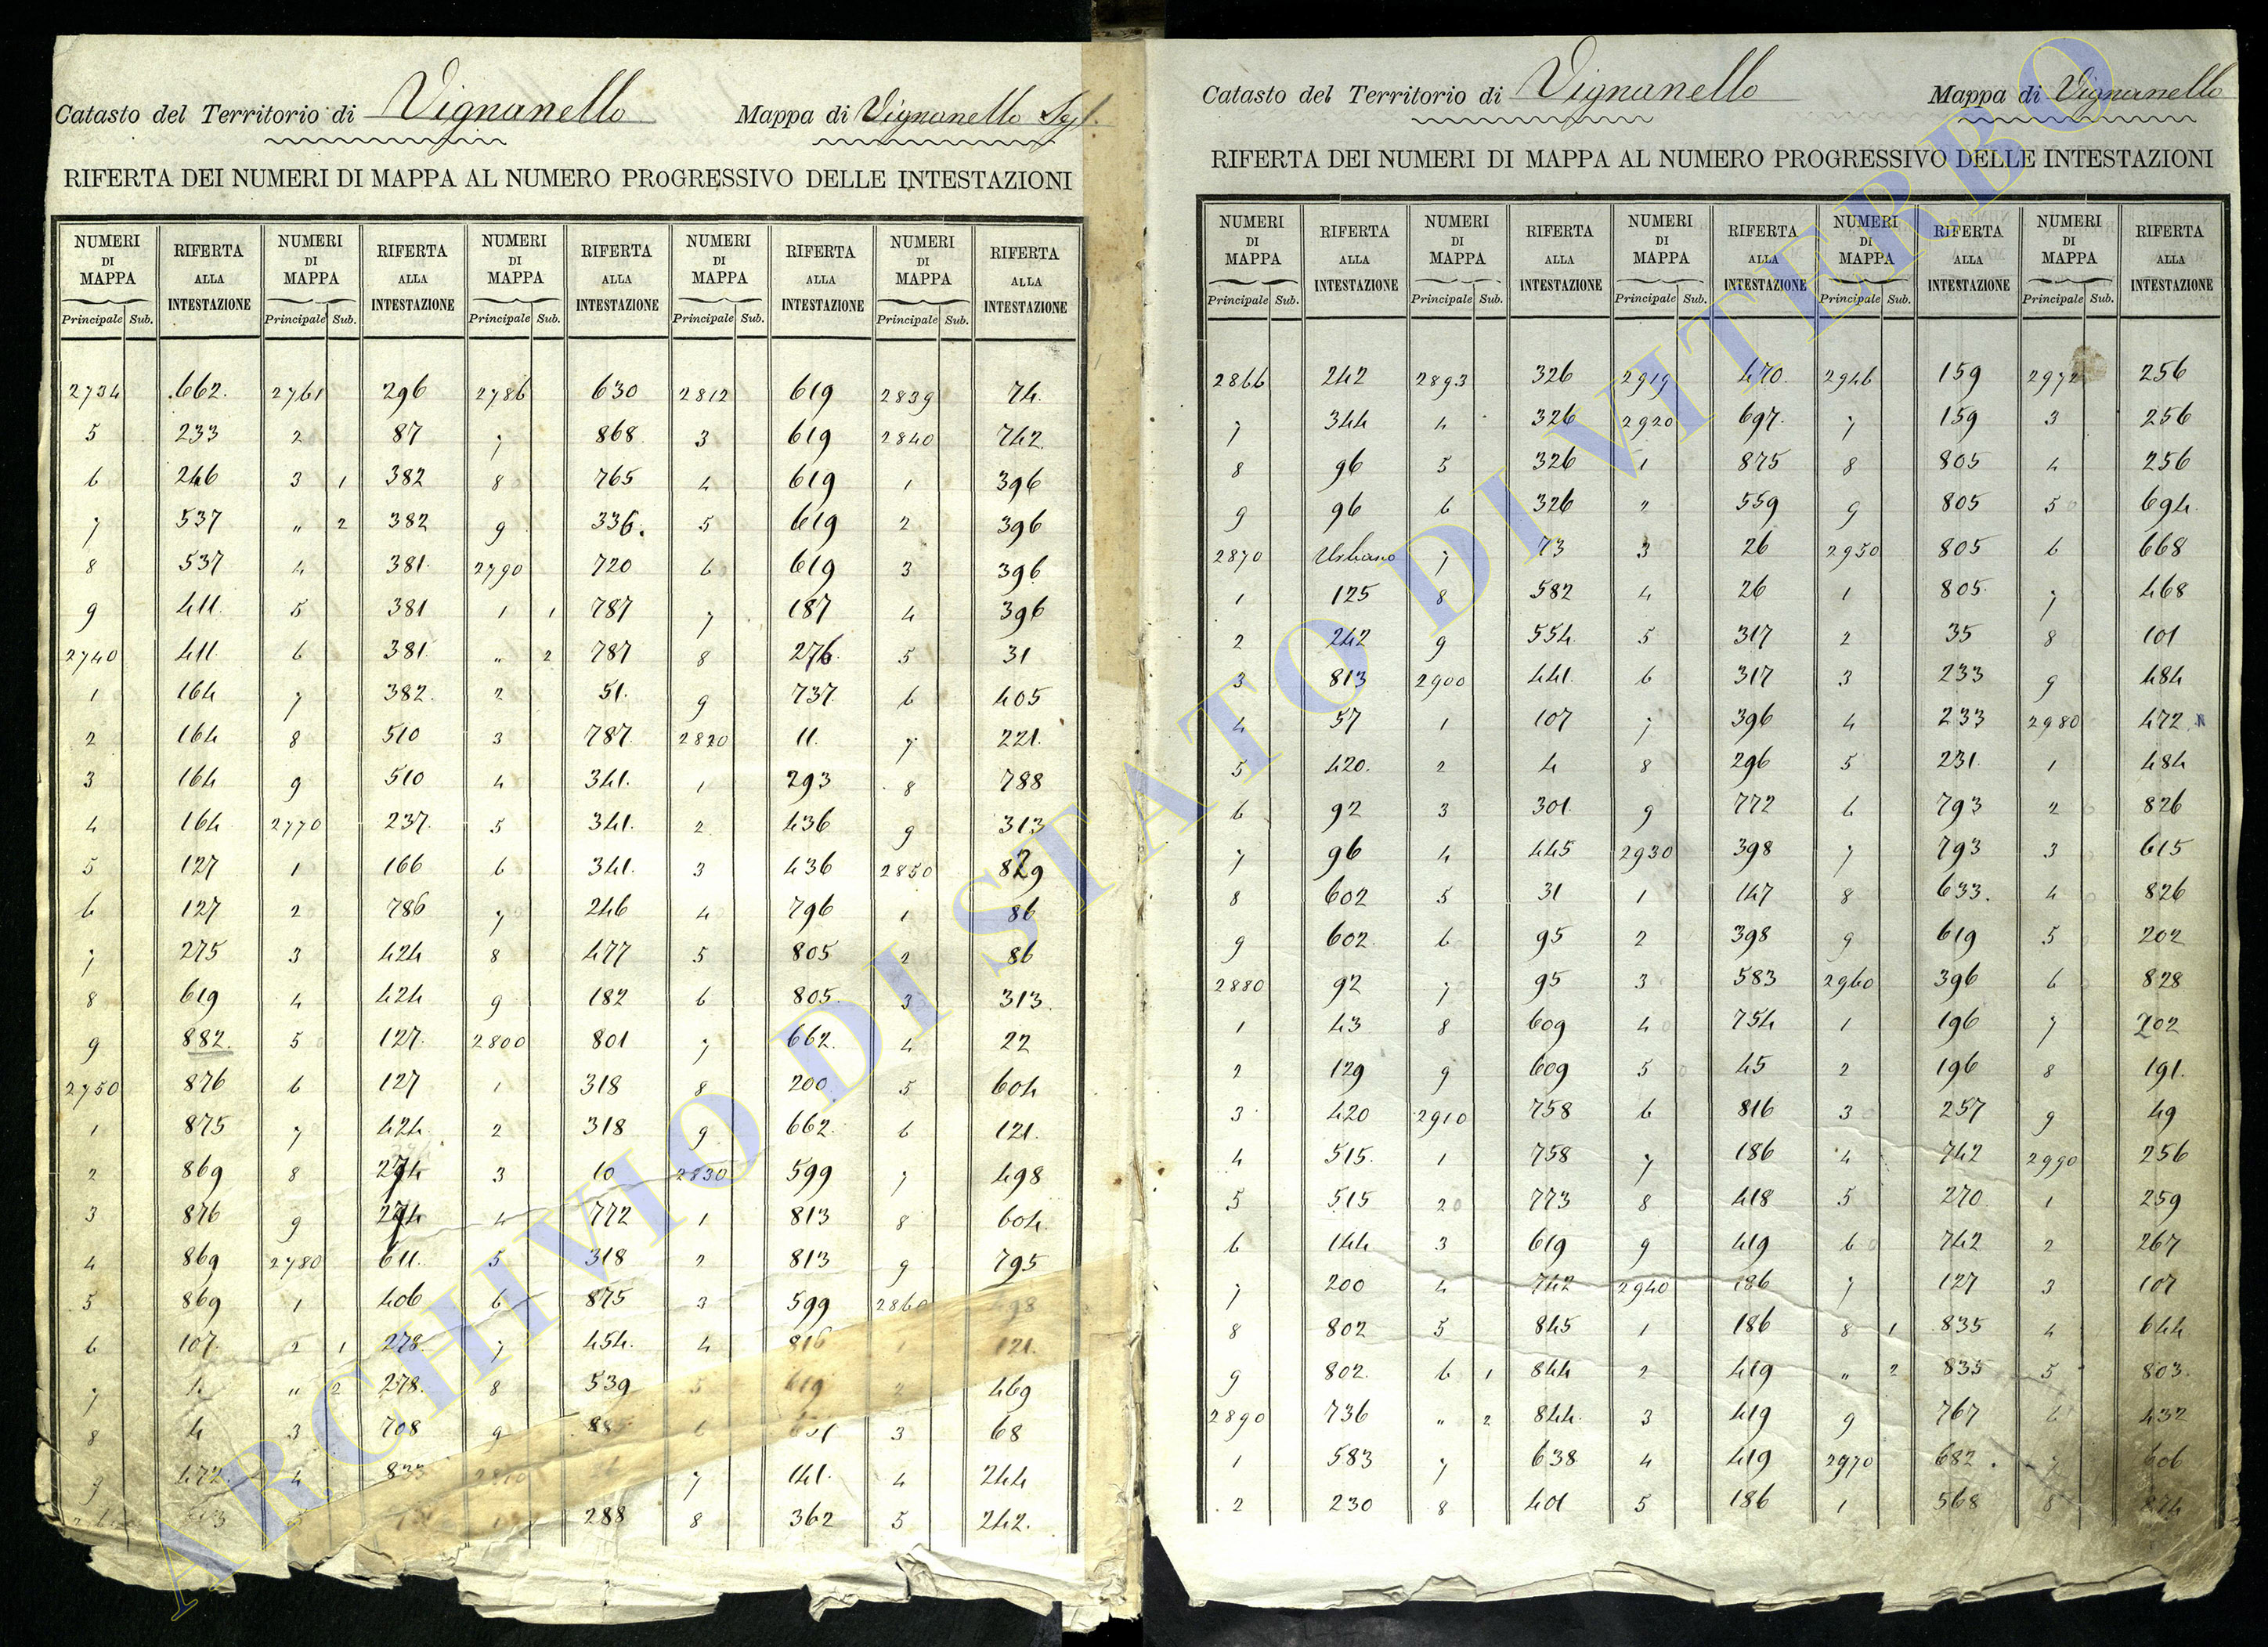 Catasto del Territorio di Vignanello Mappa di Vignanello Segt.
RIFERTA DEI NUMERI DI MAPPA AL NUMERO PROGRESSIVO DELLE INTESTAZIONI
NUMERI DI MAPPA RIFERTA ALLA INTESTAZIONE NUMERI DI MAPPA RIFERTA ALLA INTESTAZIONE NUMERI DI MAPPA RIFERTA ALLA INTESTAZIONE NUMERI DI MAPPA RIFERTA ALLA INTESTAZIONE NUMERI DI MAPPA RIFERTA ALLA INTESTAZIONE
Principale Sub. Principale Sub. Principale Sub. Principale Sub. Principale Sub.
2734 662. 2761 296 2786 630 2812 619 2839 74.
5 233 2 87 7 868 3 619 2840 742
6 246 3 1 382 8 765 4 619 1 396
7 537 " 2 382 9 336. 5 619 2 396
8 537 4 381. 2790 720 6 619 3 396
9 411. 5 381 1 1 787 7 187 4 396
2740 411. 6 381. " 2 787 8 276. 5 31
1 164 7 382. 2 51. 9 737. 6 405
2 164 8 510 3 787. 2820 11. 7 221.
3 164 9 510 4 341. 1 293 8 788
4 164 2770 237. 5 341. 2 436 9 313
5 127 1 166 6 341. 3 436 2850 829
6 127 2 786 7 246 4 796 1 86
7 275 3 424 8 477 5 805 2 86
8 619 4 424 9 182 6 805. 3 313.
9 882. 5 127. 2800 801 7 662. 4 22
2750 876 6 127 1 318 8 200 5 604
1 875 7 424. 2 318 9 662. 6 121.
2 869 8 274 3 10 2830 599 7 498
3 876 9 274 4 772 1 813 8 604.
4 869 2780 611. 5 318 2 813 9 795
5 869 1 406 6 875 3 599 2860 498
6 107. 2 1 278. 7 454. 4 816 1 121.
7 1. " 2 278. 8 539 5 619 2 469
8 4 3 708 9 3 68
9 472. 4 7 141. 4 244
288 8 362 5 242.
Catasto del Territorio di Vignanello Mappa di Vignanello
RIFERTA DEI NUMERI DI MAPPA AL NUMERO PROGRESSIVO DELLE INTESTAZIONI
NUMERI DI MAPPA RIFERTA ALLA INTESTAZIONE NUMERI DI MAPPA RIFERTA ALLA INTESTAZIONE NUMERI DI MAPPA RIFERTA ALLA INTESTAZIONE NUMERI DI MAPPA RIFERTA ALLA INTESTAZIONE NUMERI DI MAPPA RIFERTA ALLA INTESTAZIONE
Principale Sub. Principale Sub. Principale Sub. Principale Sub. Principale Sub.
2866 242 2893 326 2919 470. 2946 159 2972 256
7 344 4 326 2920 697. 7 159 3 256
8 96 5 326 1 875 8 805 4 256
9 96 6 326 2 559 9 805 5 694.
2870 Urbano 7 73 3 26 2950 805 6 668
1 125 8 582 4 26 1 805. 7 468
2 242 9 554 5 317 2 35 8 101
3 813 2900 441. 6 317 3 233 9 484
4 57 1 107 7 396 4 233 2980 472.
5 420. 2 4 8 296 5 231. 1 484
6 92 3 301. 9 772 6 793 2 826
7 96 4 445 2930 398 7 793 3 615
8 602 5 31 1 147 8 633. 4 826
9 602. 6 95 2 398 9 619 5 202
2880 92 7 95 3 583 2960 396 6 828
1 43 8 609 4 754 1 196 7 202
2 129 9 609 5 45 2 196 8 191.
3 420 2910 758 6 816 3 257 9 49
4 515. 1 758 7 186 4 742 2990 256
5 515 2 773 8 418 5 270 1 259
6 144 3 619 9 419 6 742 2 267
7 200 4 742 2940 186 7 127 3 107
8 802 5 845 1 186 8 1 835 4 644
9 802. 6 1 844 2 419 " 2 835 5 803.
2890 736 " 2 844. 3 419 9 767 6 432
1 583 7 638 4 419 2970 682. 7 606
2 230 8 401 5 186 1 568 8 874
ARCHIVIO DI STATO DI VITERBO